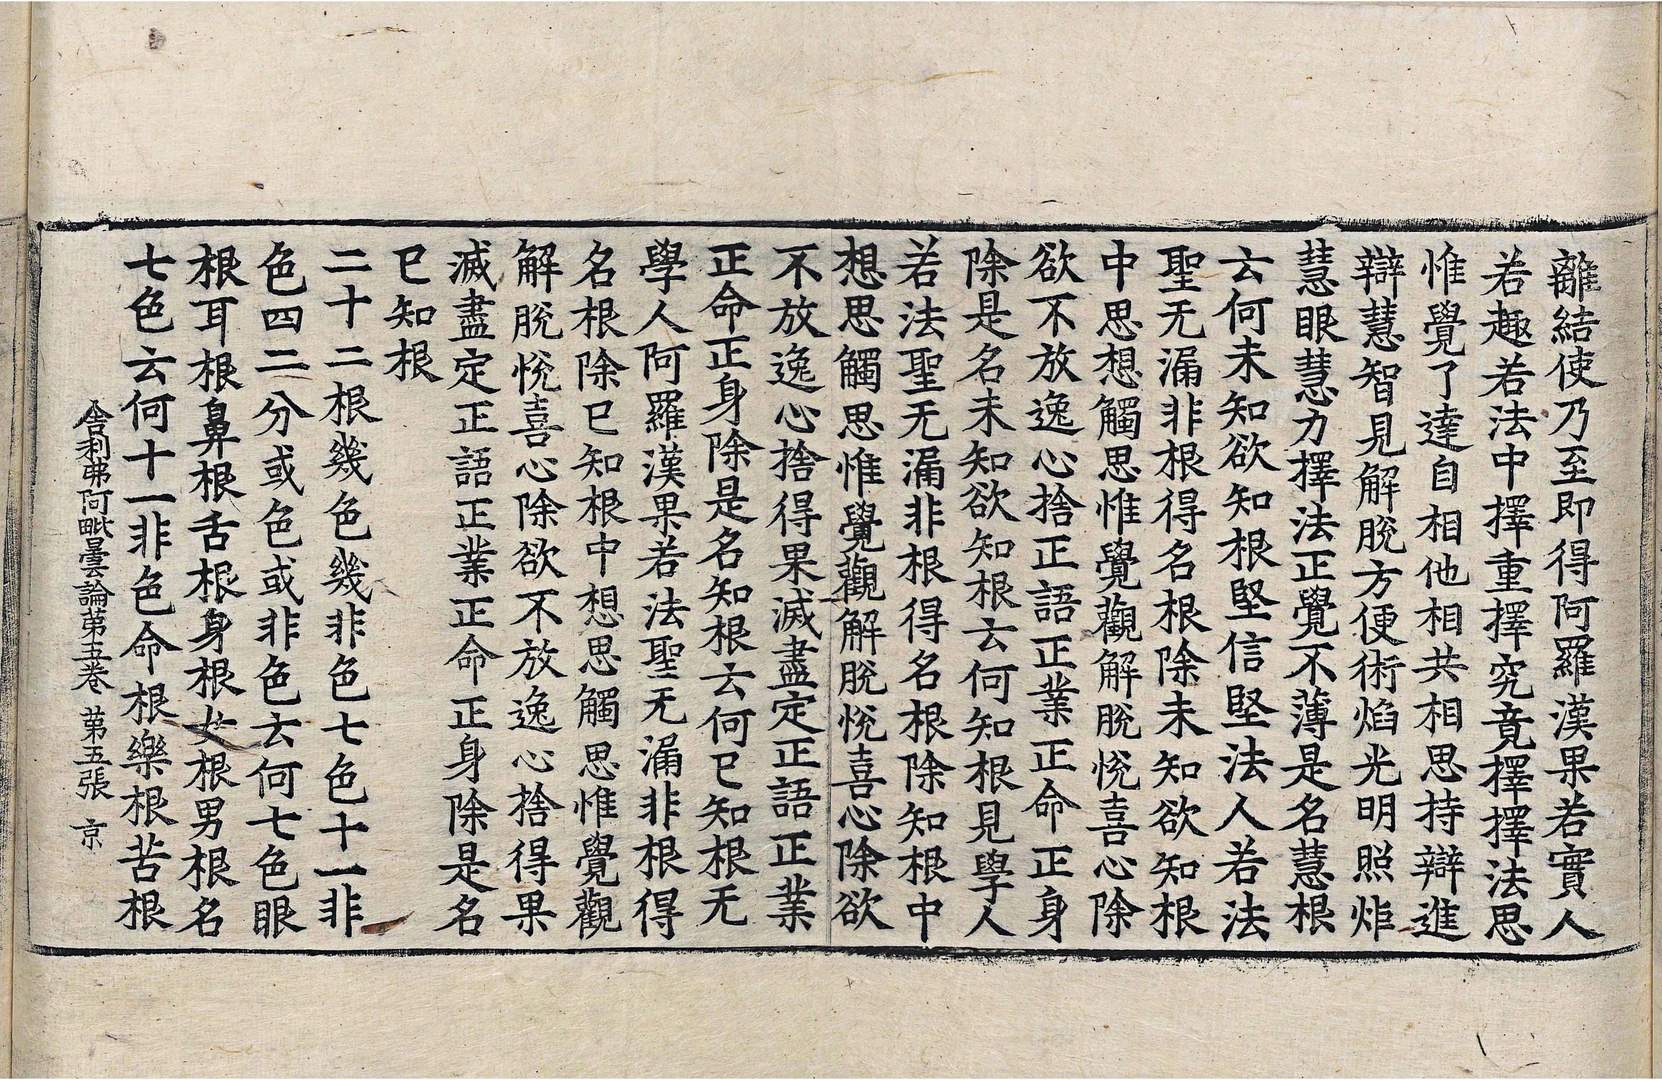 離結使乃至即得阿羅漢果若實人
若趣若法中擇重擇究竟擇擇法思
惟覺了達自相他相共相思持辯進
辯慧智見解脫方便術焰光明照炬
慧眼慧力擇法正覺不薄是名慧根
云何未知欲知根堅信堅法人若法
聖无漏非根得名根除未知欲知根
中思想觸思惟覺觀解脫悅喜心除
欲不放逸心捨正語正業正命正身
除是名未知欲知根云何知根見學人
若法聖无漏非根得名根除知根中
想思觸思惟覺觀解脫悅喜心除欲
不放逸心捨得果滅盡定正語正業
正命正身除是名知根云何已知根无
學人阿羅漢果若法聖无漏非根得
名根除已知根中想思觸思惟覺觀
解脫悅喜心除欲不放逸心捨得果
滅盡定正語正業正命正身除是名
已知根
二十二根幾色幾非色七色十一非
色四二分或色或非色云何七色眼
根耳根鼻根舌根身根女根男根名
七色云何十一非色命根樂根苦根
舍利弗阿毗曇論第五卷 第五張 京